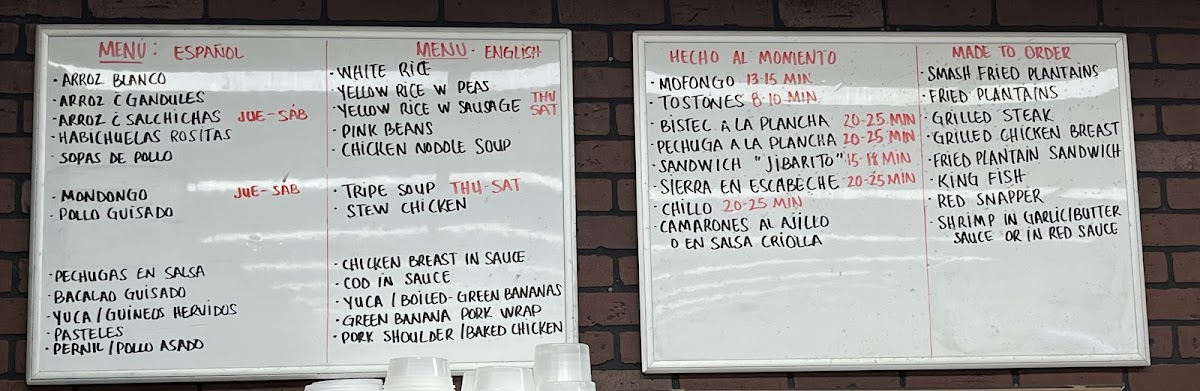 MENÚ: ESPAÑOL
· ARROZ BLANCO
· ARROZ C GANDULES
· ARROZ C SALCHICHAS JUE-SÁB
· HABICHUELAS ROSITAS
· SOPAS DE POLLO
· MONDONGO JUE-SÁB
· POLLO GUISADO
· PECHUGAS EN SALSA
· BACALAO GUISADO
· YUCA / GUINEOS HERVIDOS
· PASTELES
· PERNIL / POLLO ASADO
MENU - ENGLISH
· WHITE RICE
· YELLOW RICE W PEAS
· YELLOW RICE W SAUSAGE THU SAT
· PINK BEANS
· CHICKEN NODDLE SOUP
· TRIPE SOUP THU-SAT
· STEW CHICKEN
· CHICKEN BREAST IN SAUCE
· COD IN SAUCE
· YUCA / BOILED-GREEN BANANAS
· GREEN BANANA PORK WRAP
· PORK SHOULDER / BAKED CHICKEN
HECHO AL MOMIENTO
· MOFONGO 13-15 MIN
· TOSTONES 8-10 MIN
· BISTEC A LA PLANCHA 20-25 MIN
· PECHUGA A LA PLANCHA 20-25 MIN
· SANDWICH "JIBARITO" 15-18 MIN
· SIERRA EN ESCABECHE 20-25 MIN
· CHILLO 20-25 MIN
· CAMARONES AL AJILLO
O EN SALSA CRIOLLA
MADE TO ORDER
· SMASH FRIED PLANTAINS
· FRIED PLANTAINS
· GRILLED STEAK
· GRILLED CHICKEN BREAST
· FRIED PLANTAIN SANDWICH
· KING FISH
· RED SNAPPER
· SHRIMP IN GARLIC/BUTTER
SAUCE OR IN RED SAUCE